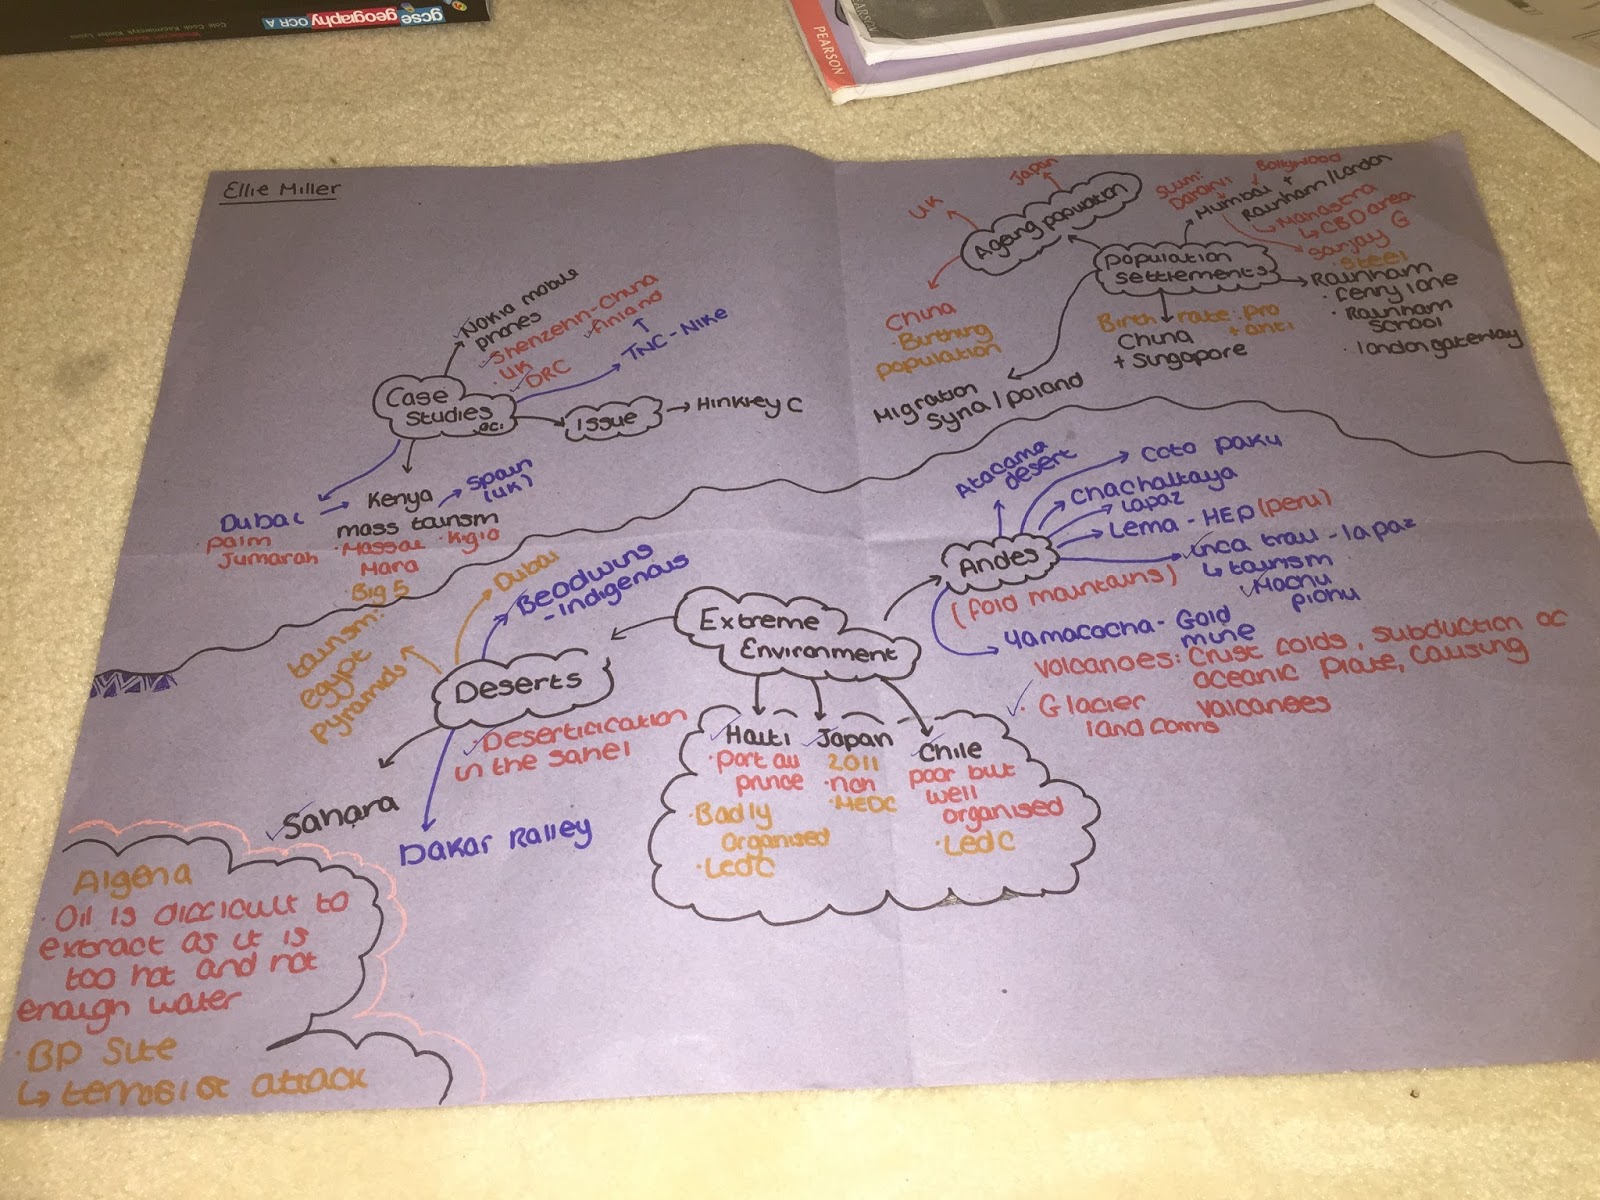 gcse geography OCR A
PEARSON
Ellie Miller
Nokia mobile
phones
Shenzenn-China
finland
UK
DRC
TNC - NIKE
Case
Studies
Issue
Hinkley C
Dubai
Palm
Jumarah
Kenya
mass tourism
Massai
Mara
Big 5
Spain
(UK)
Ageing population
Japan
UK
China
Birthing
population
Population
Settlements
Bollywood
Slum:
Mumbai +
Rainham/London
CBD area
Sanjay G
Steel
Rainham
Ferry lane
Rainham
School
london gateway
Birth rate: pro
+ anti
China
+ Singapore
Migration
Syria / poland
Extreme
Environment
Andes
(fold mountains)
Atacama
desert
Coto paku
Chachaltaya
Lapaz
Lema - HEP (peru)
Inca trail - lapaz
tourism
Machu
pichu
Yamacocha - Gold
mine
Volcanoes: Crust folds, subduction of
oceanic plate, causing
volcanoes
Glacier
land forms
Deserts
Dubai
Beodwins
- indigenous
tourism:
egypt
pyramids
Desertification
in the sahel
Sahara
Dakar Ralley
Haiti
port au
prince
Badly
organised
LedC
Japan
2011
MEDC
Chile
poor but
well
organised
LedC
Algeria
Oil is difficult to
extract as it is
too hot and not
enough water
BP Site
terrorist attack